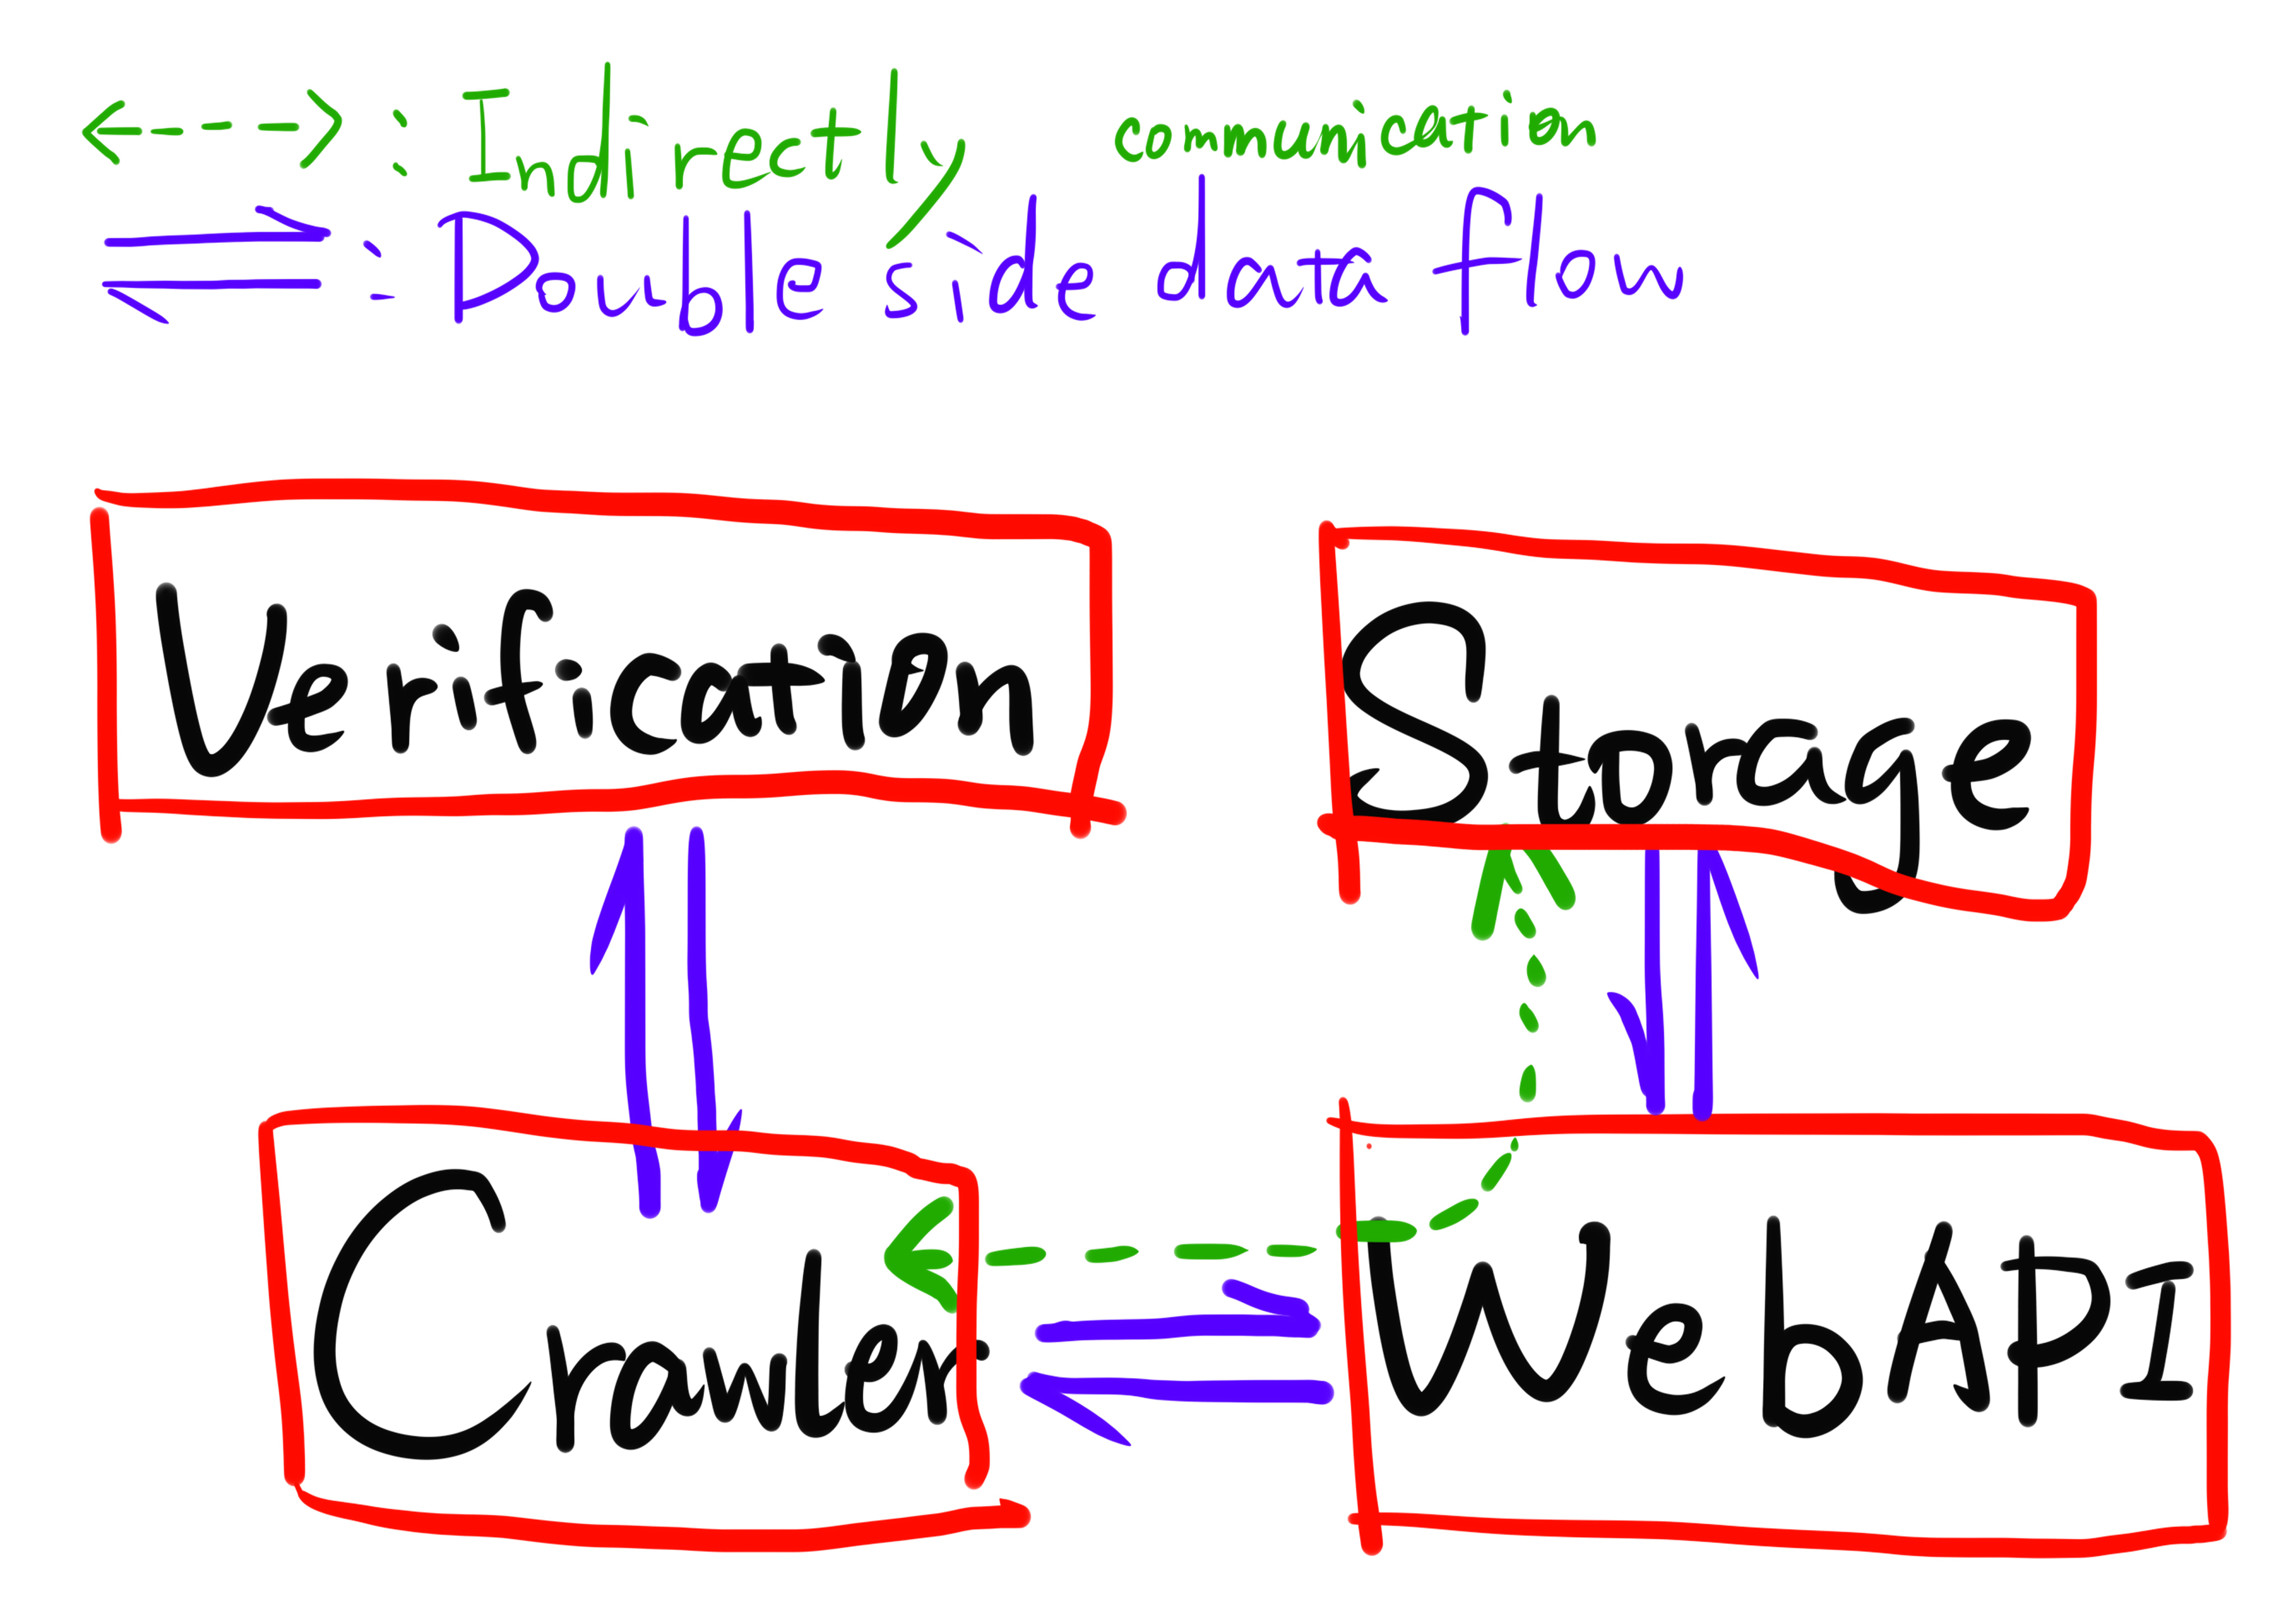 : Indirectly communication
: Double side data flow
Verification
Storage
Crawler
WebAPI